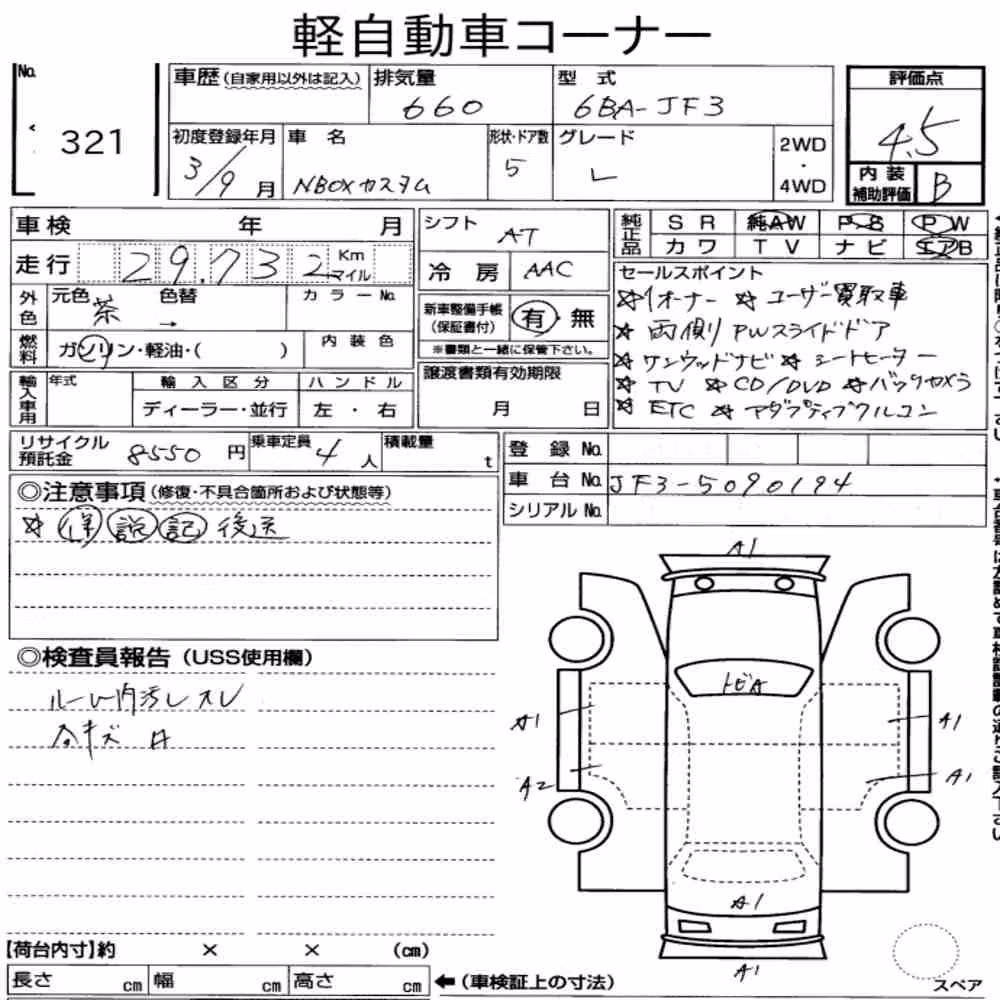 軽自動車コーナー
No. 321
車歴(自家用以外は記入) 排気量 660 型式 6BA-JF3 評価点 4.5
初度登録年月 3/9月 車名 NBOXカスタム 形状・ドア数 5 グレード L 2WD・4WD 内装補助評価 B
車検 年 月 シフト AT 純正品 SR 純AW PS PW
走行 29.732 Kmマイル 冷房 AAC カワ TV ナビ エアB
外色 元色 茶 色替 → カラーNo. 新車整備手帳(保証書付) 有・無 セールスポイント
※書類と一緒に保管下さい。
☆1オーナー ☆ユーザー買取車
☆両側PWスライドドア
☆サンウッドナビ ☆シートヒーター
☆TV ☆CD/DVD ☆バックカメラ
☆ETC ☆アダプティブクルコン
燃料 ガソリン・軽油・( ) 内装色
輸入車用 年式 輸入区分 ハンドル 譲渡書類有効期限
ディーラー・並行 左・右 月 日
リサイクル預託金 8550円 乗車定員 4人 積載量 t 登録No.
車台No. JF3-5090194
シリアルNo.
◎注意事項(修復・不具合箇所および状態等)
☆ 説 記 後送
◎検査員報告(USS使用欄)
ルーム内汚レスレ
キズ
A1
トビA
A1 A1
A2 A1
A1
A1
【荷台内寸】約 × × (cm)
長さ cm 幅 cm 高さ cm ←(車検証上の寸法) スペア